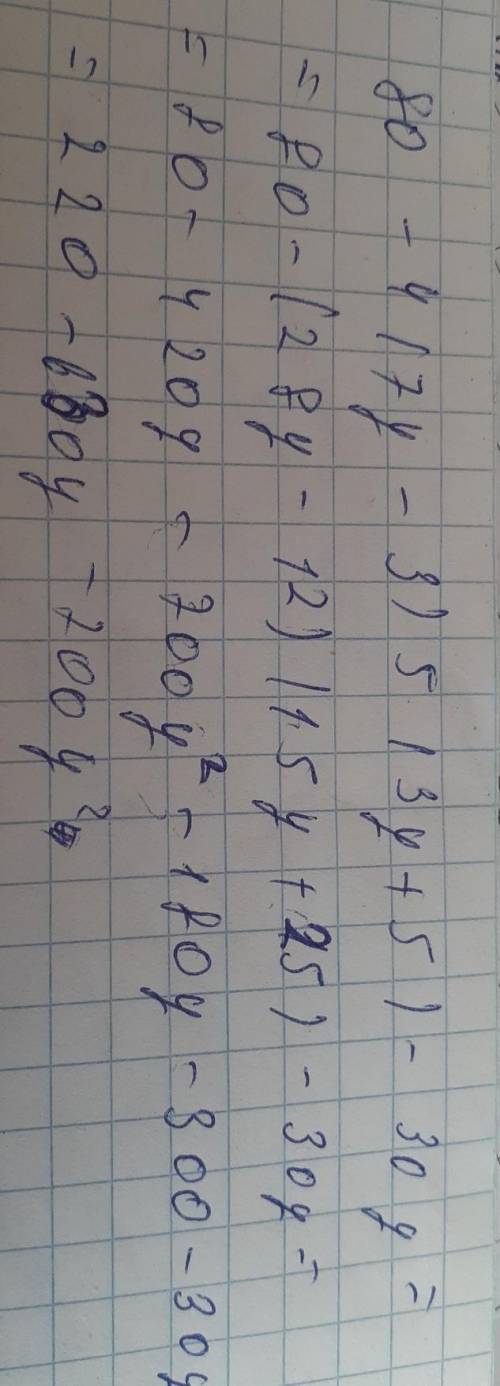 80 - 4(7y - 3)5(3y + 5) - 30y =
= 80 - (28y - 12)(15y + 25) - 30y =
= 80 - 420y - 700y² - 180y - 300 - 30y
= 220 - 630y - 700y²